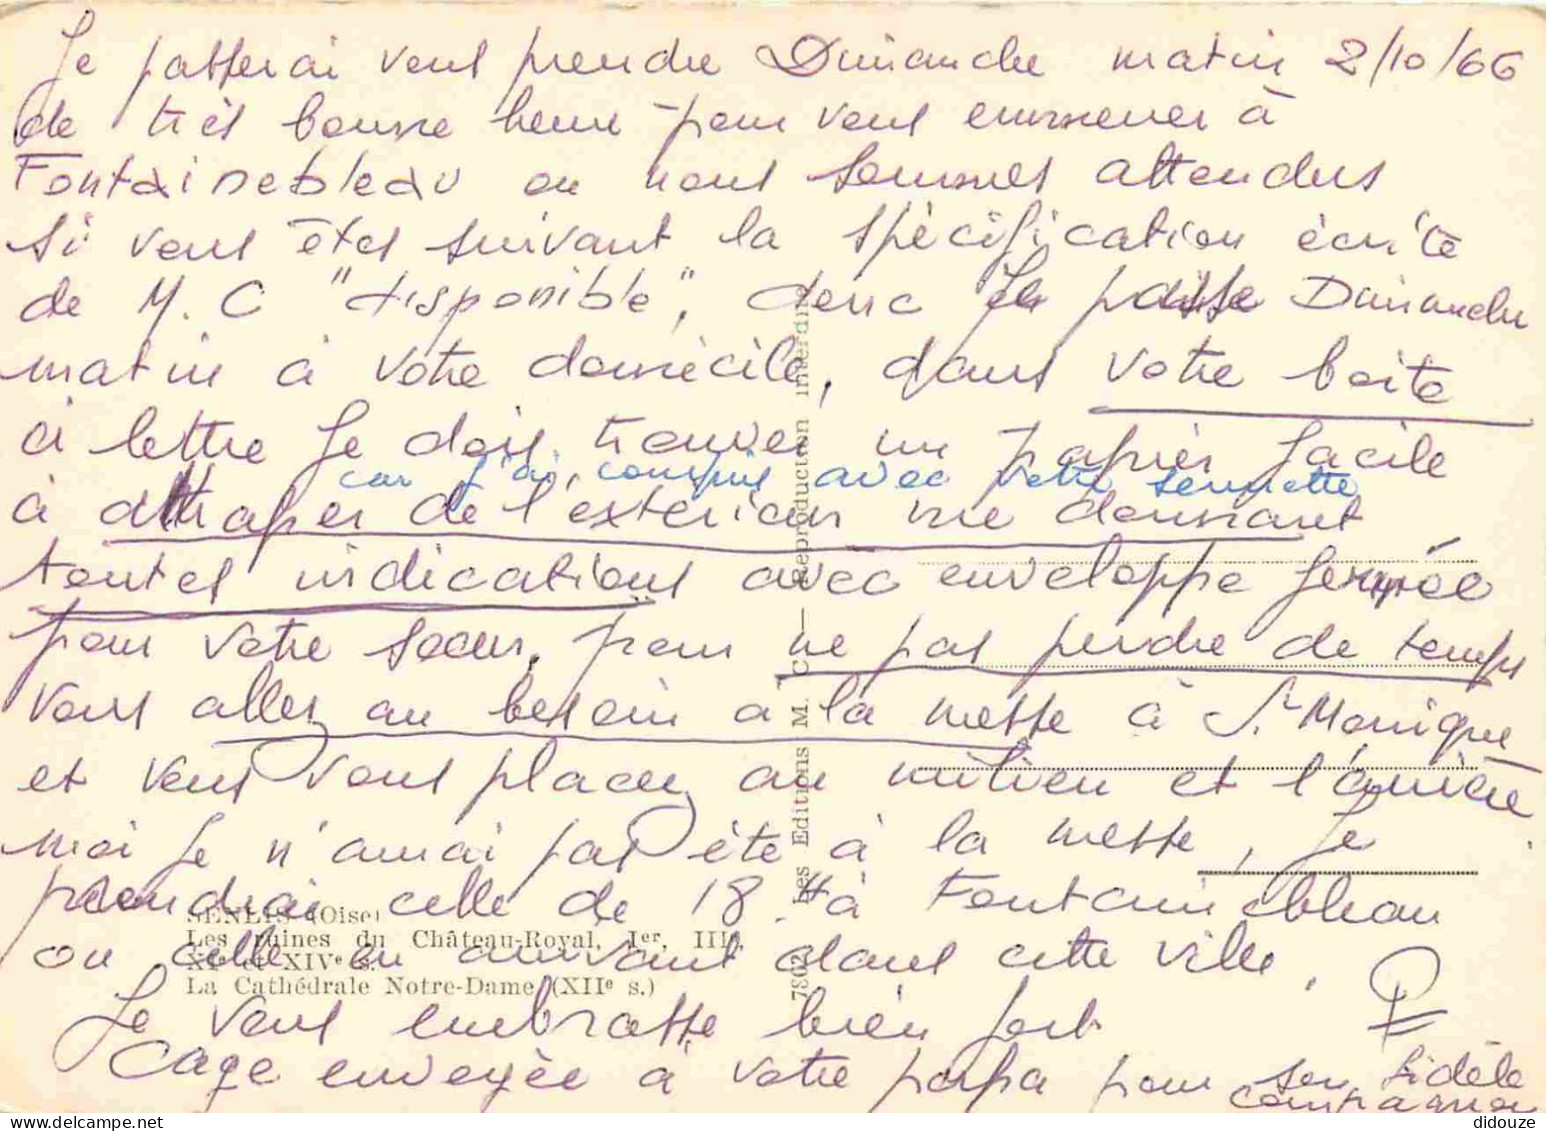 Je passerai vous prendre Dimanche matin 2/10/66
de très bonne heure pour vous emmener à
Fontainebleau ou nous sommes attendus
si vous êtes suivant la spécification écrite
de M. C "disponible", donc je passe Dimanche
matin à votre domicile, dans votre boite
à lettre Je dois trouver un papier facile
car j'ai compris avec votre sonnette
à attraper de l'extérieur me donnant
toutes indications avec enveloppe fermée
pour votre soeur, pour ne pas perdre de temps
vous allez au besoin a la messe à Ste Monique
et vous vous placez au milieu et l'arrière
moi Je n'aurai pas été à la messe, Je
prendrai celle de 18 H à Fontainebleau
ou celle en arrivant dans cette ville.
Je vous embrasse bien fort
Cage envoyée à votre papa pour son fidèle
compagnon
SENLIS (Oise)
Les ruines du Château-Royal, Ier, IIIe,
XIe et XIVe s.
La Cathédrale Notre-Dame (XIIe s.)
7802 Les Editions M. C — Reproduction interdite
didouze